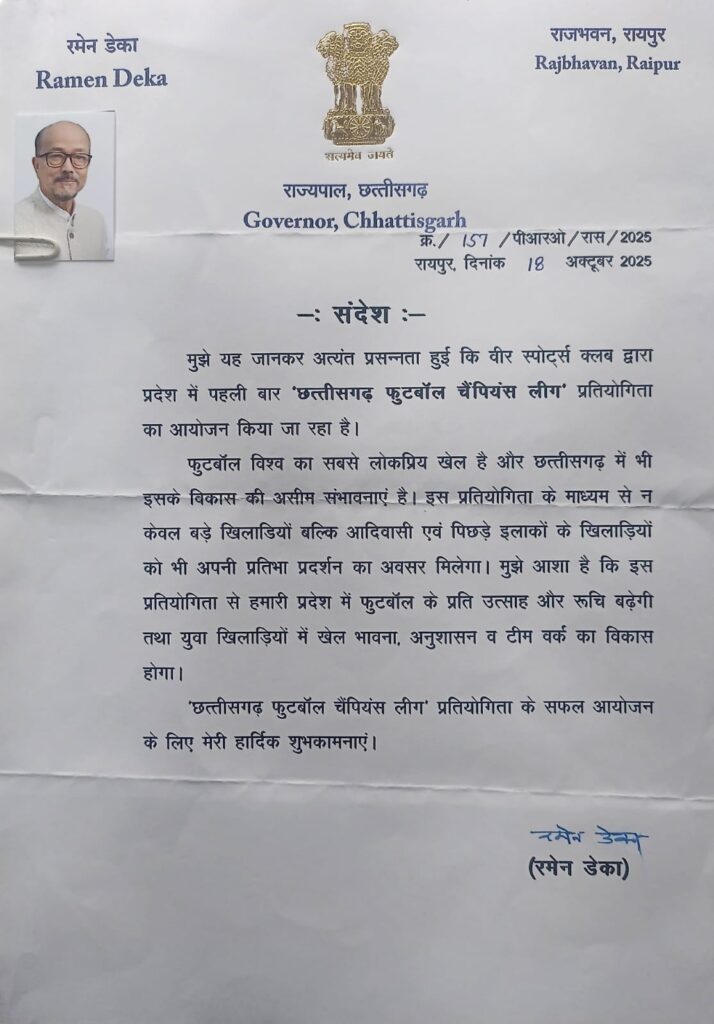 रमेन डेका
Ramen Deka
सत्यमेव जयते
राजभवन, रायपुर
Rajbhavan, Raipur
राज्यपाल, छत्तीसगढ़
Governor, Chhattisgarh
क्र./ 157 /पीआरओ/रास/2025
रायपुर, दिनांक 18 अक्टूबर 2025
-: संदेश :-
मुझे यह जानकर अत्यंत प्रसन्नता हुई कि वीर स्पोर्ट्स क्लब द्वारा
प्रदेश में पहली बार ‘छत्तीसगढ़ फुटबॉल चैंपियंस लीग’ प्रतियोगिता
का आयोजन किया जा रहा है।
फुटबॉल विश्व का सबसे लोकप्रिय खेल है और छत्तीसगढ़ में भी
इसके विकास की असीम संभावनाएं है। इस प्रतियोगिता के माध्यम से न
केवल बड़े खिलाडियों बल्कि आदिवासी एवं पिछड़े इलाकों के खिलाड़ियों
को भी अपनी प्रतिभा प्रदर्शन का अवसर मिलेगा। मुझे आशा है कि इस
प्रतियोगिता से हमारी प्रदेश में फुटबॉल के प्रति उत्साह और रूचि बढ़ेगी
तथा युवा खिलाड़ियों में खेल भावना, अनुशासन व टीम वर्क का विकास
होगा।
‘छत्तीसगढ़ फुटबॉल चैंपियंस लीग’ प्रतियोगिता के सफल आयोजन
के लिए मेरी हार्दिक शुभकामनाएं।
रमेन डेका
(रमेन डेका)